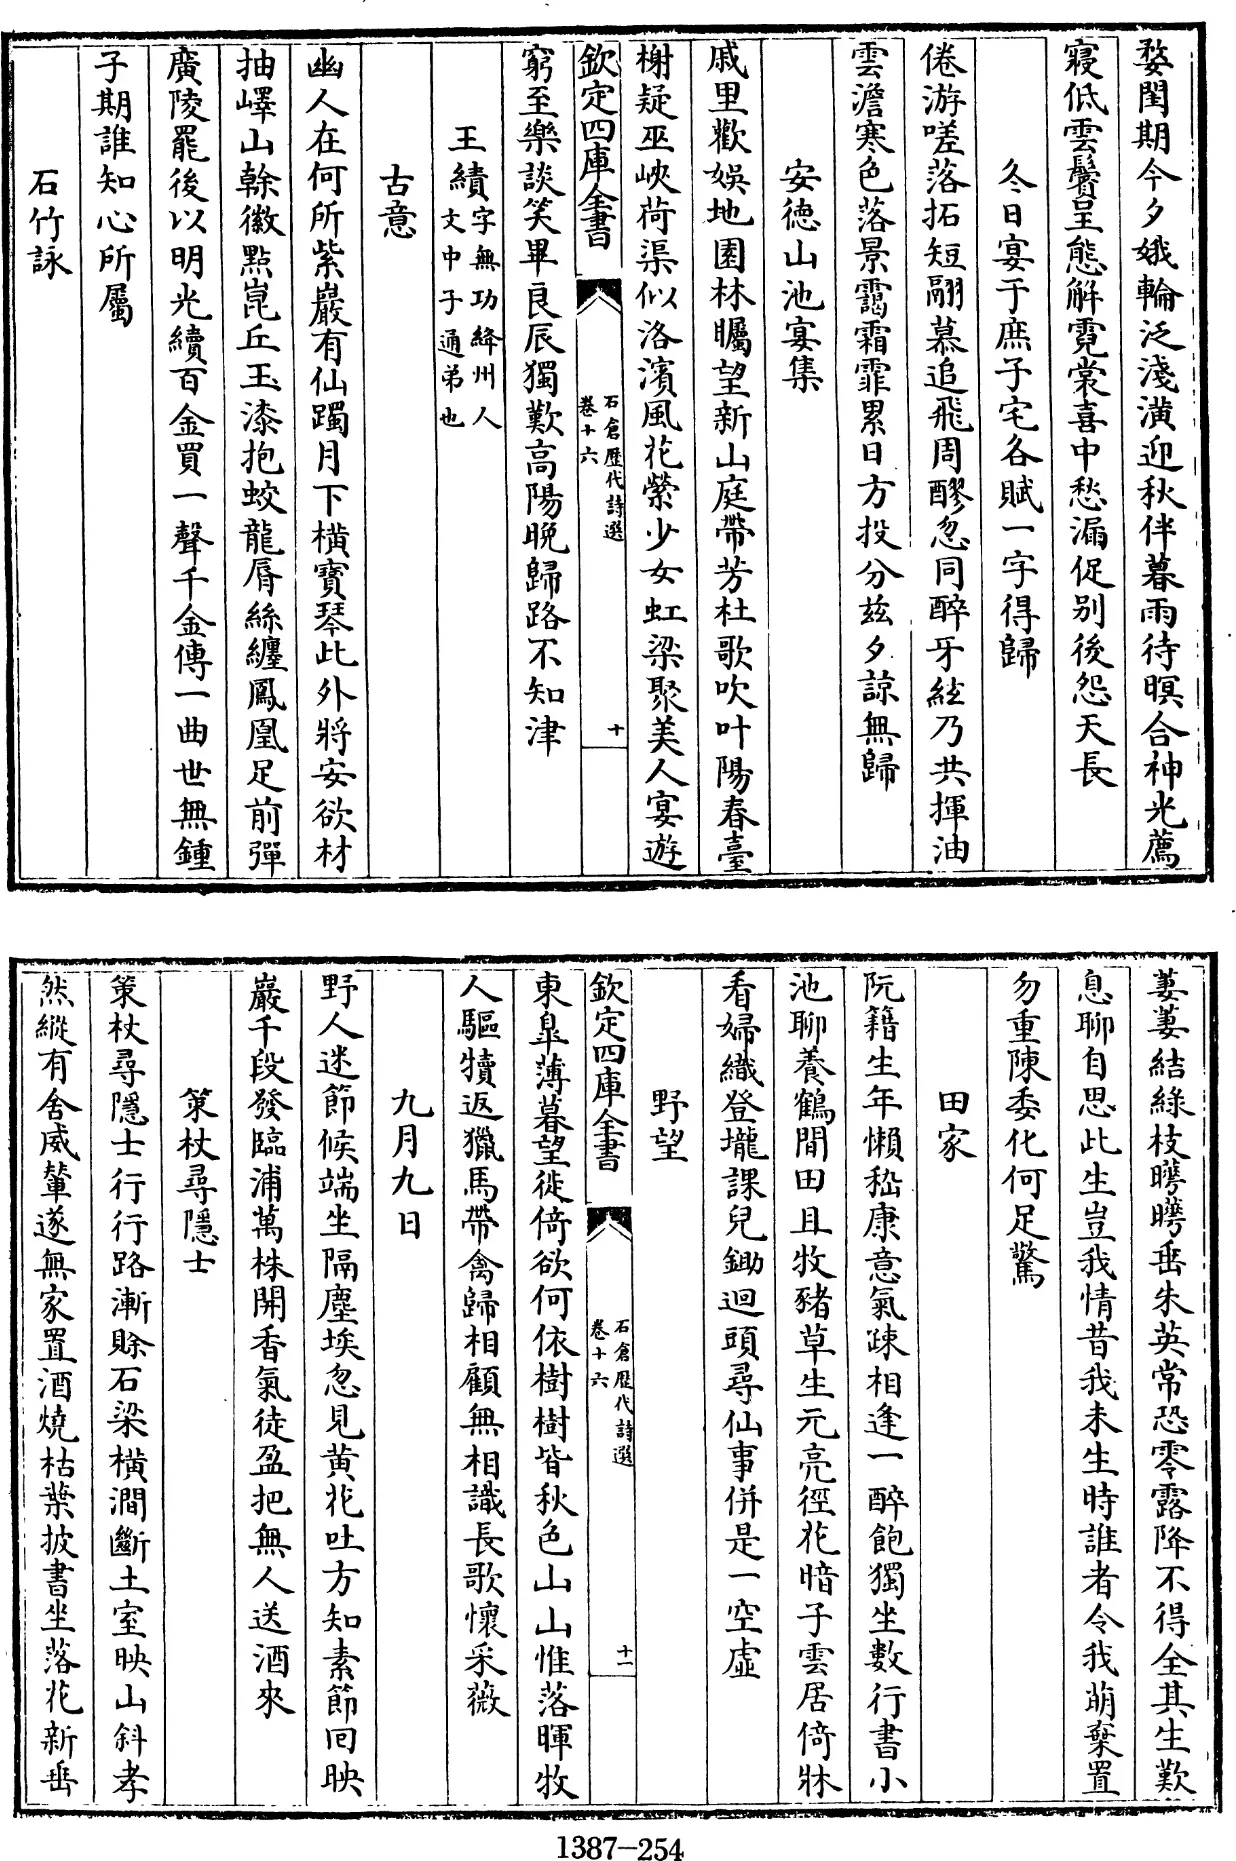 婺閨期今夕娥輪泛淺潢迎秋伴暮雨待暝合神光薦
寢低雲鬢呈態解霓裳喜中愁漏促别後怨天長
冬日宴于庶子宅各賦一字得歸
倦游嗟落拓短翮慕追飛周醪忽同醉牙絃乃共揮油
雲澹寒色落景靄霜霏累日方投分兹夕諒無歸
安徳山池宴集
戚里歡娯地園林矚望新山庭帶芳杜歌吹叶陽春臺
榭疑巫峽荷渠似洛濱風花縈少女虹梁聚美人宴遊
欽定四庫全書
石倉歷代詩選
卷十六
十
窮至樂談笑畢良辰獨歎高陽晩歸路不知津
王績字無功絳州人
文中子通弟也
古意
幽人在何所紫巖有仙躅月下横寳琴此外將安欲材
抽嶧山榦徽點崑丘玉漆抱蛟龍脣絲纒鳳凰足前彈
廣陵罷後以明光續百金買一聲千金傳一曲世無鍾
子期誰知心所屬
石竹詠
萋萋結緑枝曄曄垂朱英常恐零露降不得全其生歎
息聊自思此生豈我情昔我未生時誰者令我萌棄置
勿重陳委化何足驚
田家
阮籍生年懶嵇康意氣疎相逢一醉飽獨坐數行書小
池聊養鶴閒田且牧豬草生元亮徑花暗子雲居倚牀
看婦織登壠課兒鋤迴頭尋仙事併是一空虚
野望
欽定四庫全書
石倉歷代詩選
卷十六
十一
東臯薄暮望徙倚欲何依樹樹皆秋色山山惟落暉牧
人驅犢返獵馬帶禽歸相顧無相識長歌懷采薇
九月九日
野人迷節候端坐隔塵埃忽見黄花吐方知素節囘映
巖千段發臨浦萬株開香氣徒盈把無人送酒來
策杖尋隱士
策杖尋隱士行行路漸賖石梁横澗斷土室映山斜孝
然縱有舍威輦遂無家置酒燒枯葉披書坐落花新垂
1387-254